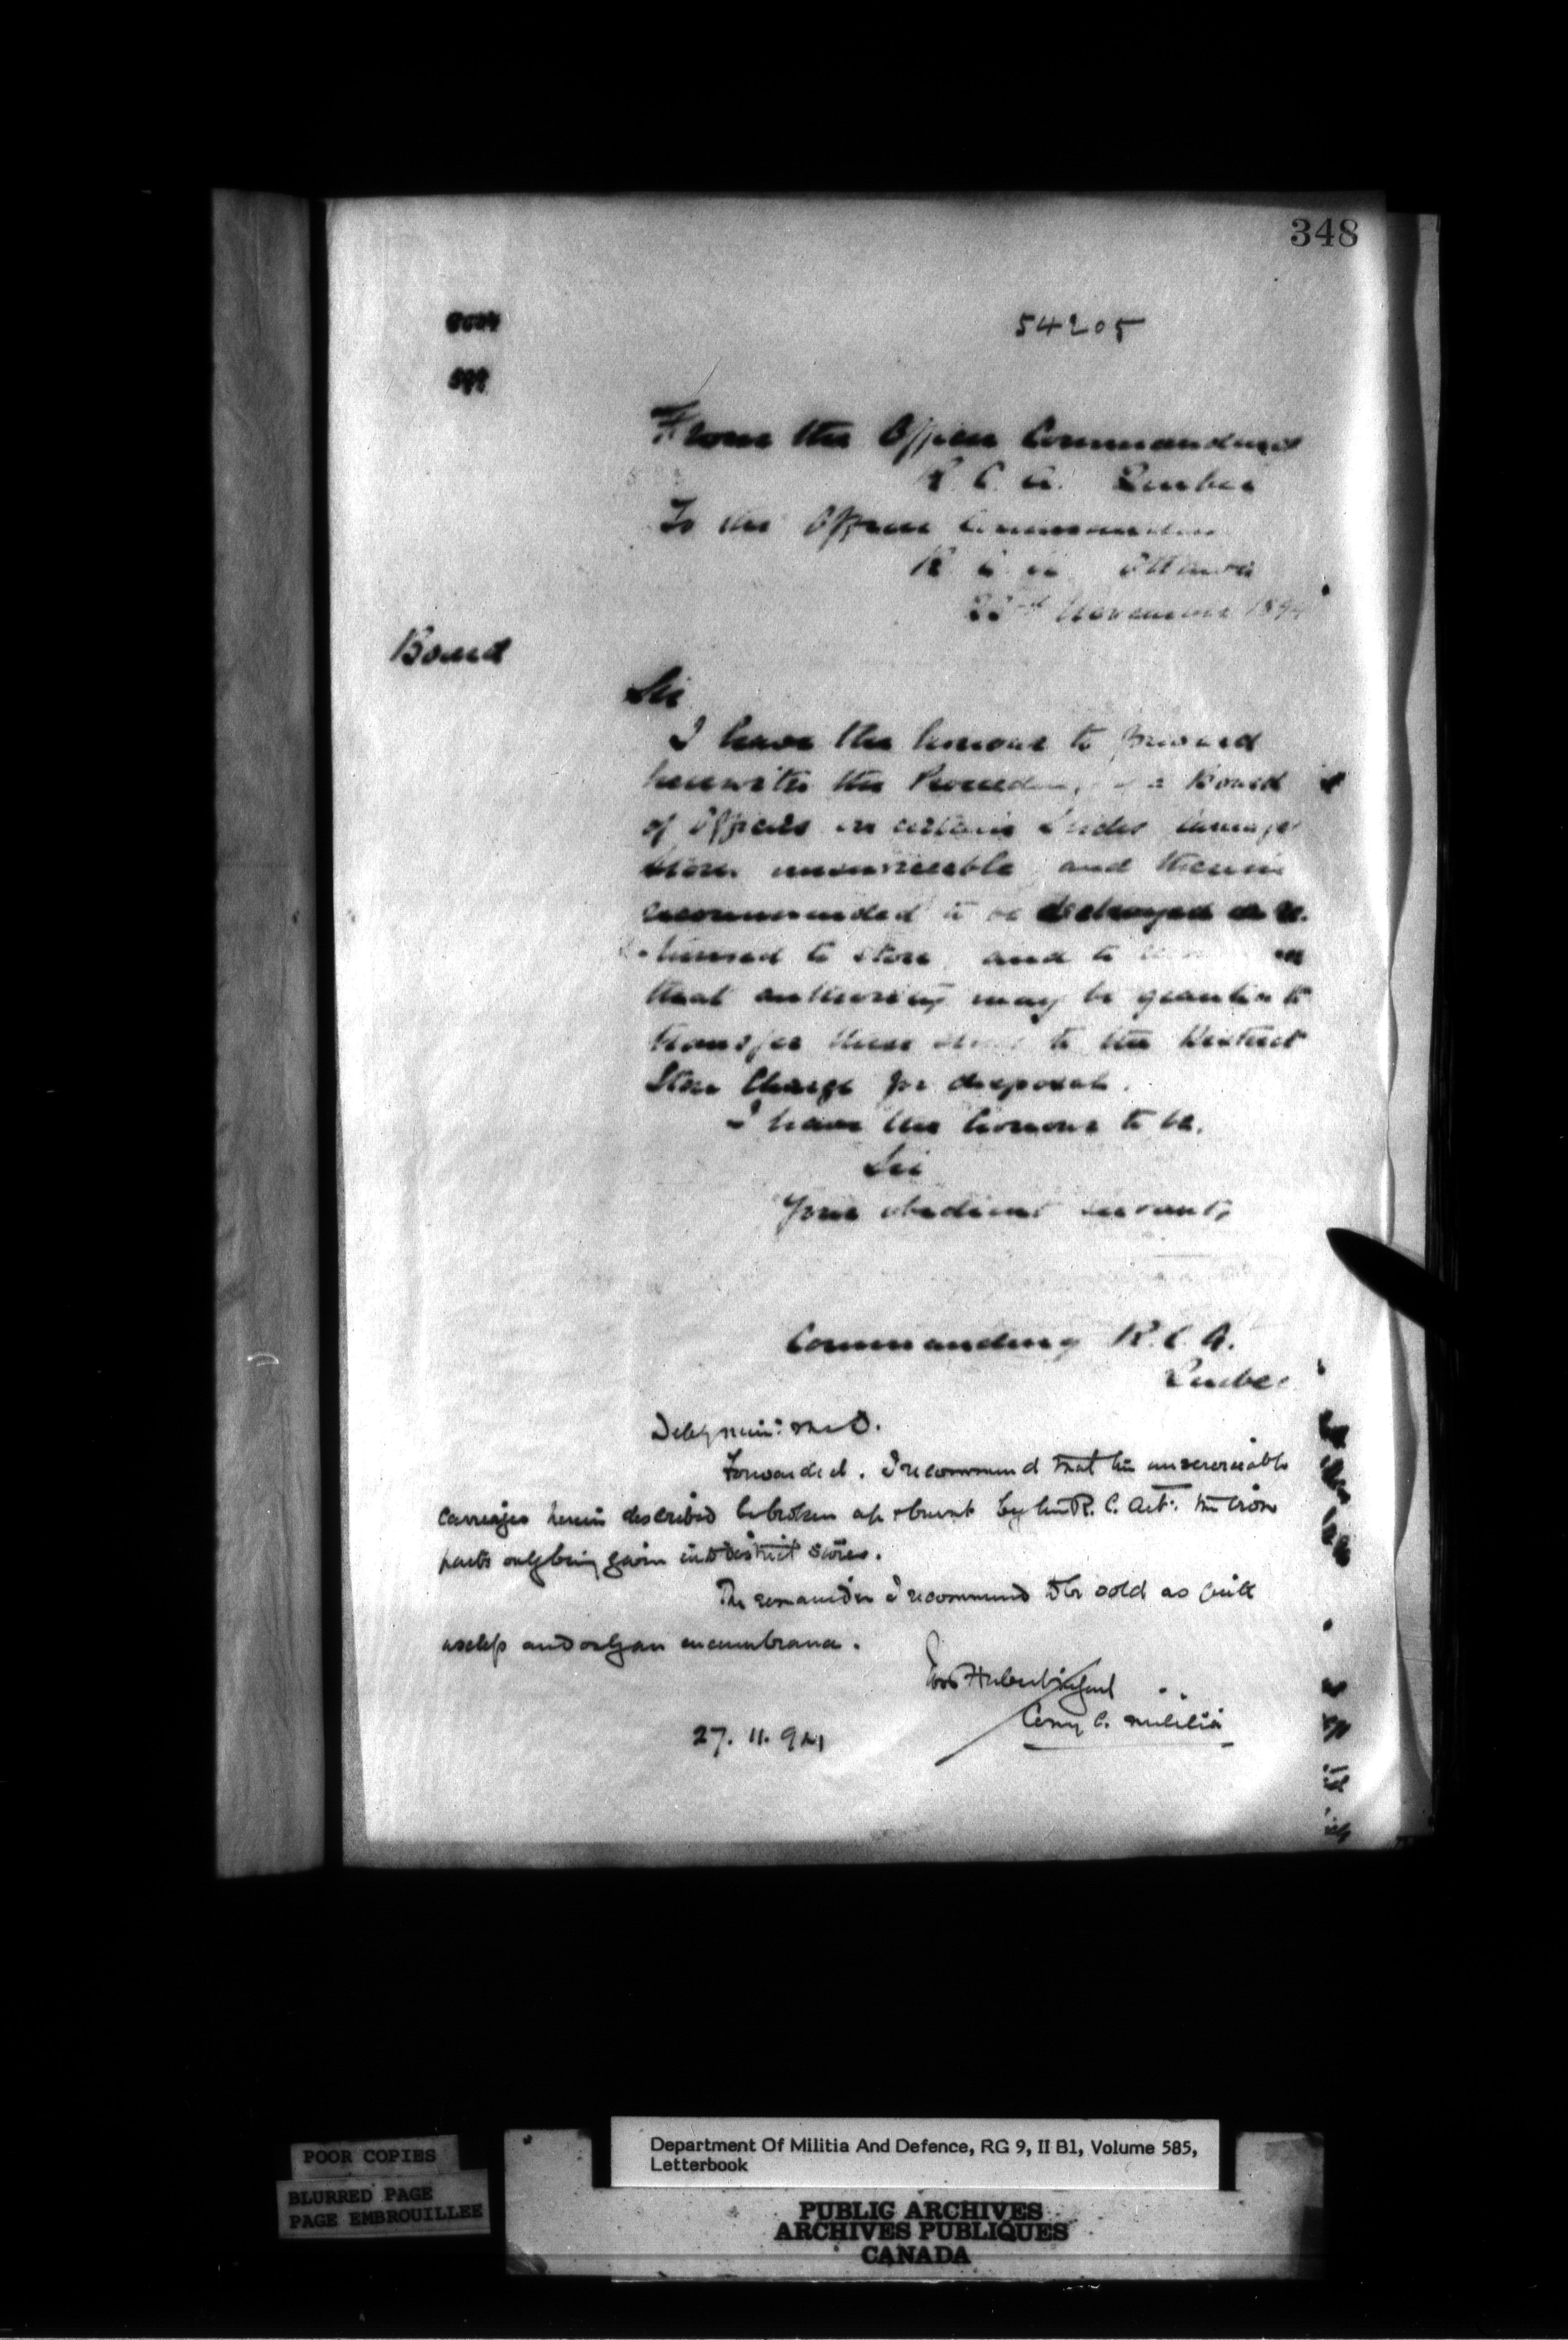 348
54205
From the Officer Commanding
R. C. A. Quebec
To the Officer Commanding
R C A Ottawa
November 1894
Board
Sir
I have the honour to forward
herewith the Proceedings of a Board
of Officers on certain
Stores unserviceable and therein
recommended to be destroyed or re
turned to store and to
that authority may be granted to
transfer these to the District
Store Charge for disposal.
I have the honour to be,
Sir
Your obedient servant,
Commanding R. C. A.
Quebec
Forwarded. I recommend that the unserviceable
carriages herein described be broken up & burnt by the R. C. Art: the iron
parts only being given into District Stores.
The remainder I recommend to be sold as quite
useless and only an encumbrance.
Comg C. Militia
27. 11. 94
POOR COPIES
BLURRED PAGE
PAGE EMBROUILLEE
Department Of Militia And Defence, RG 9, II B1, Volume 585,
Letterbook
PUBLIC ARCHIVES
ARCHIVES PUBLIQUES
CANADA